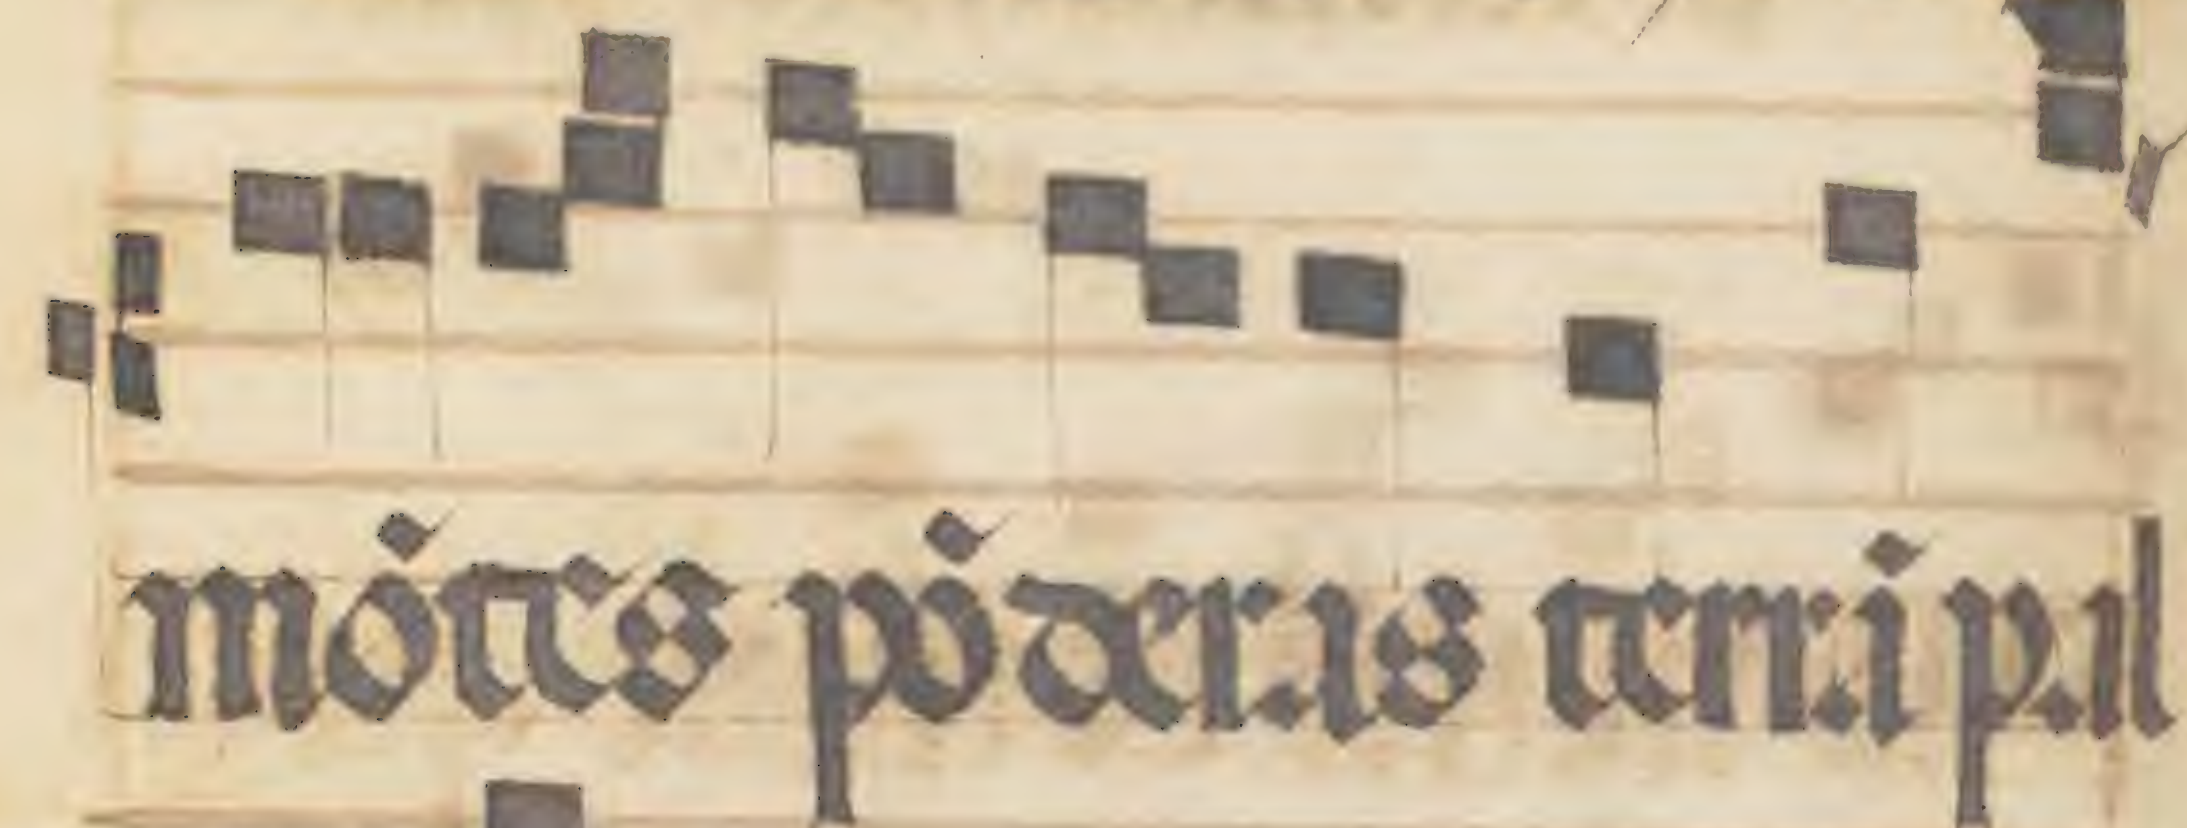 mōtes pōderas terrā pal